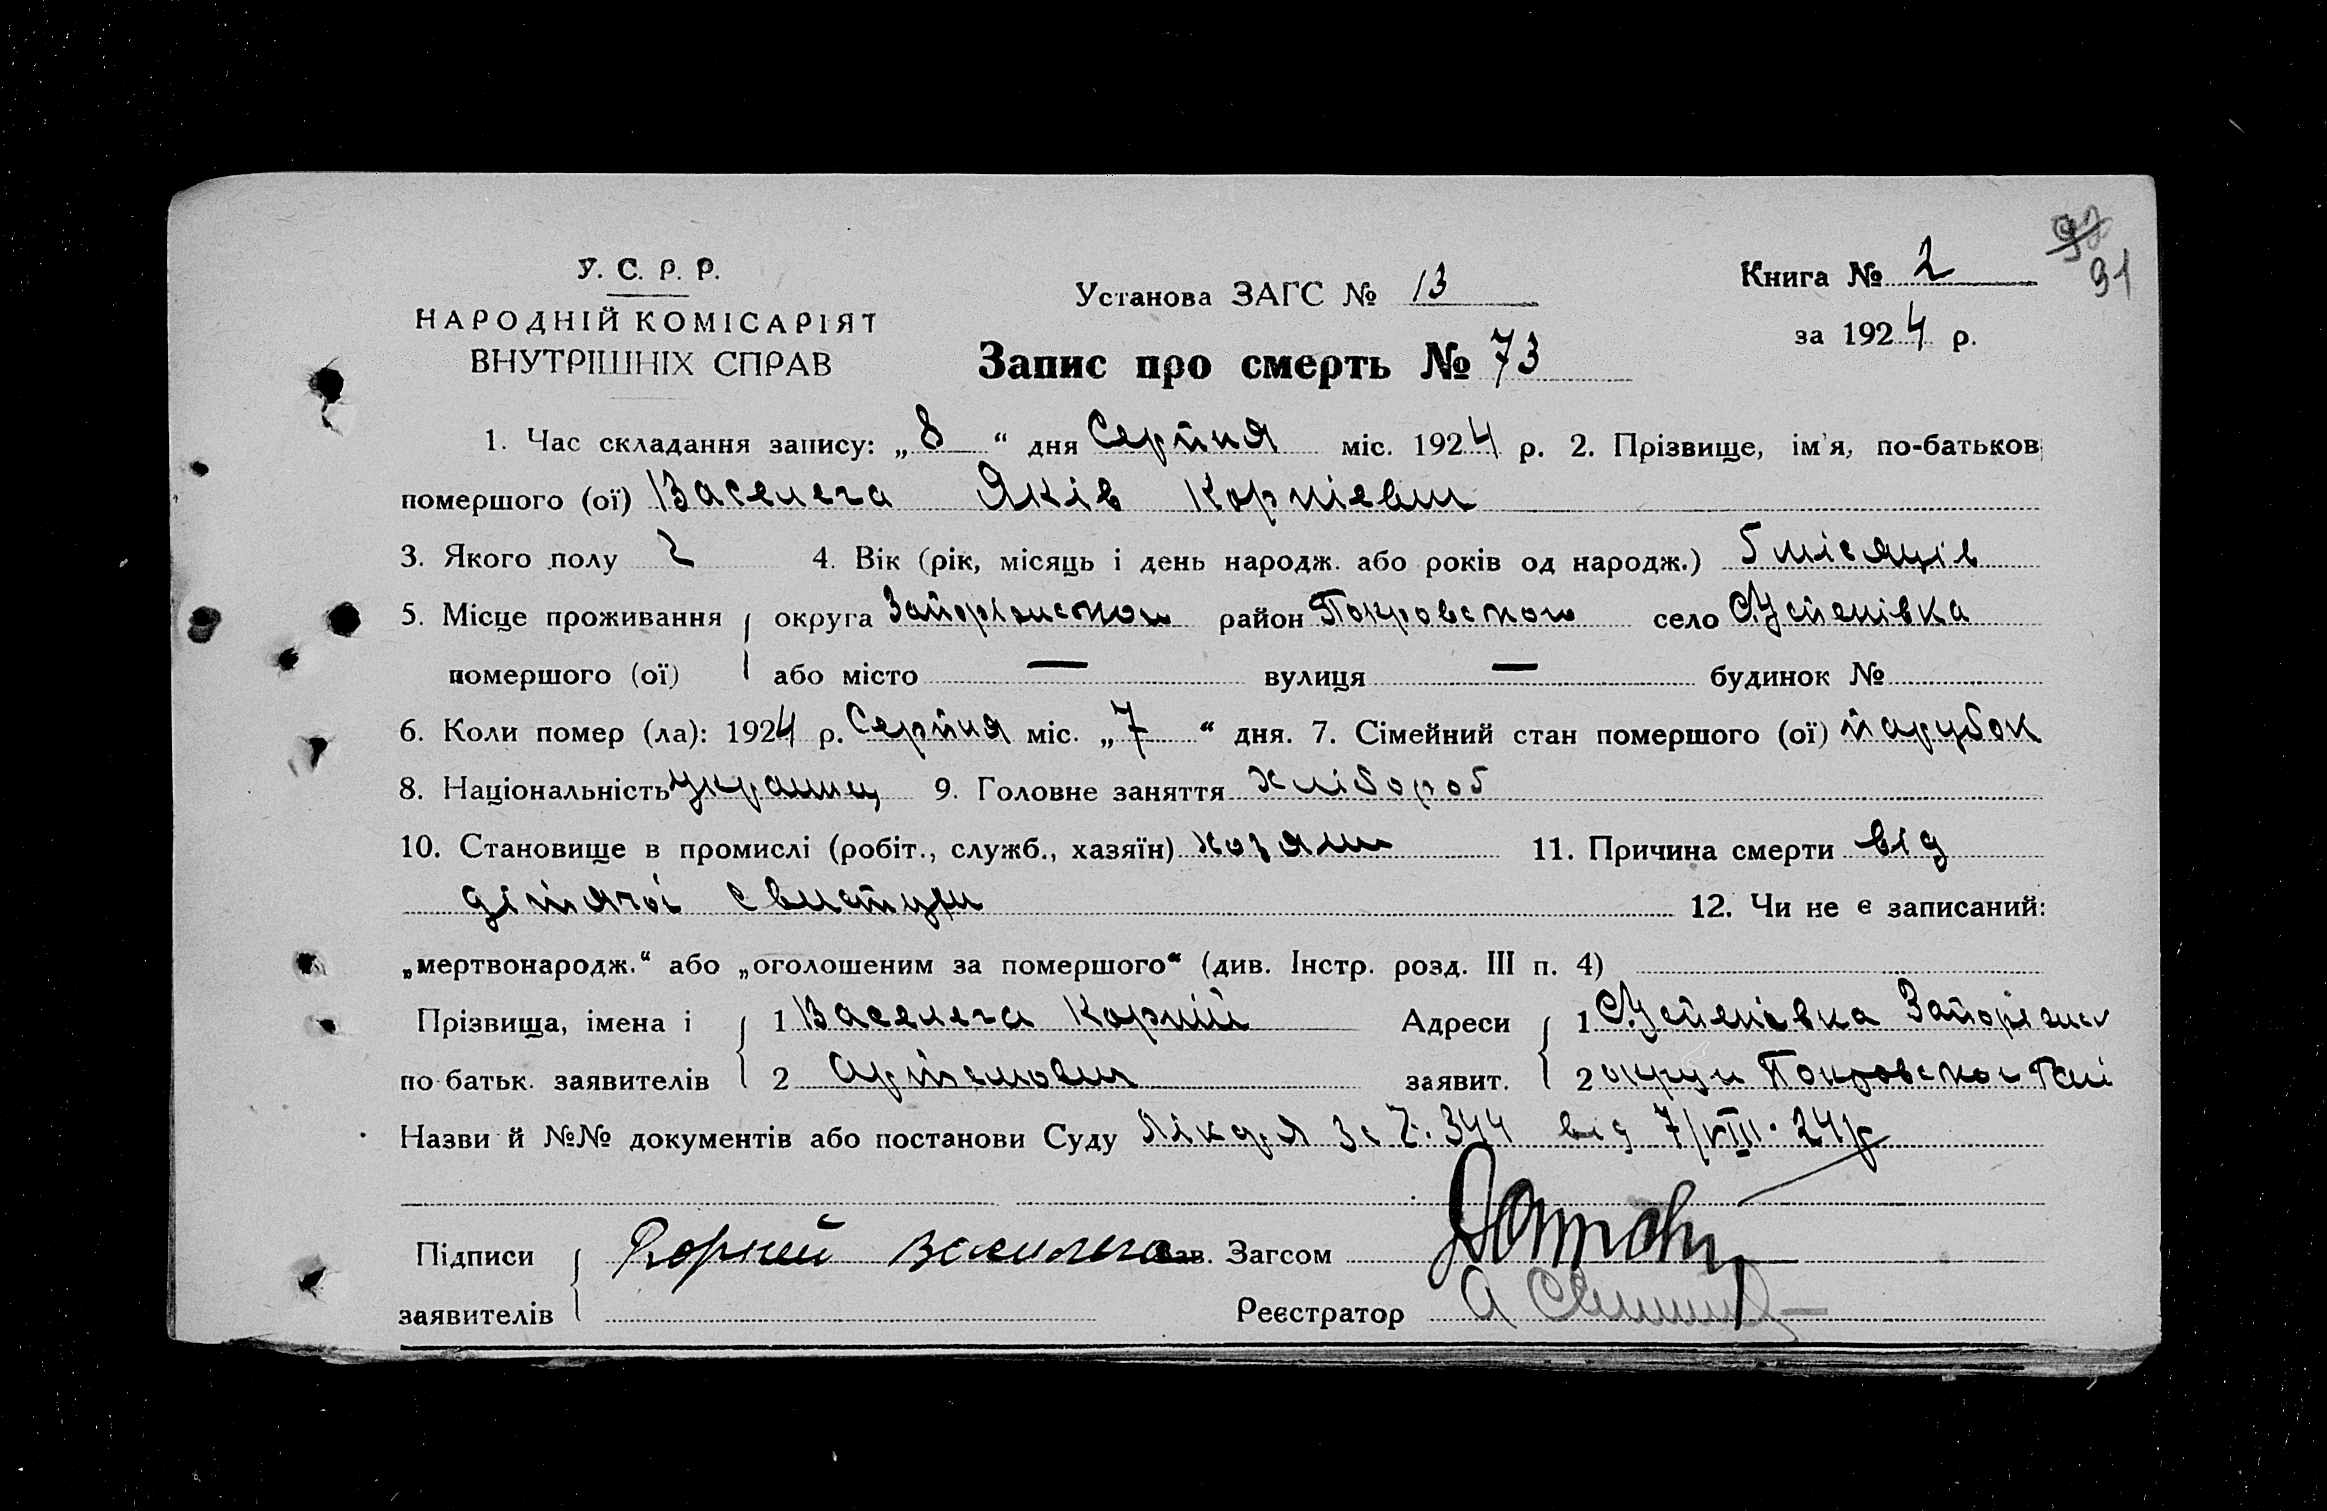 92
91
У. С. Р. Р.
НАРОДНІЙ КОМІСАРІЯТ
ВНУТРІШНІХ СПРАВ
Установа ЗАГС № 13
Книга № 2
за 1924 р.
Запис про смерть № 73
1. Час складання запису: „8“ дня Серпня міс. 1924 р. 2. Прізвище, ім'я, по-батьков
помершого (ої) Васелега Яків Корнієвич
3. Якого полу Ч 4. Вік (рік, місяць і день народж. або років од народж.) 5 місяців
5. Місце проживання округа Запоріжской район Покровского село С.Успенівка
помершого (ої) або місто — вулиця — будинок №
6. Коли помер (ла): 1924 р. Серпня міс. „7“ дня. 7. Сімейний стан помершого (ої) парубок
8. Національність украинец 9. Головне заняття хлібороб
10. Становище в промислі (робіт., служб., хазяїн) хозяин 11. Причина смерти від
дітячої
12. Чи не є записаний:
„мертвонародж.“ або „оголошеним за помершого“ (див. Інстр. розд. III п. 4)
Прізвища, імена і 1 Васелега Корній Адреси 1 С.Успенівка Запоріжск
по батьк. заявителів 2 Артемович заявит. 2 округи Покровской
Назви й №№ документів або постанови Суду за Ч. 344 від 7/VIII-24р
Підписи Корней Василега Зав. Загсом
заявителів Реєстратор